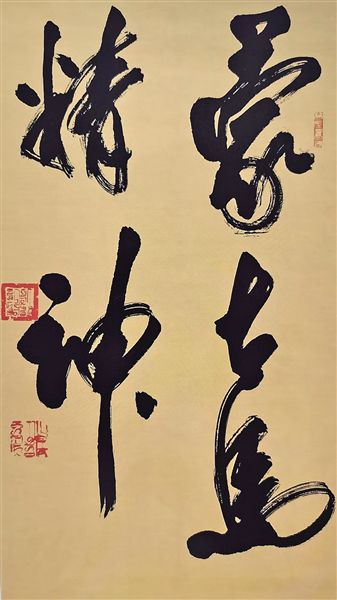 蒙古馬
精神